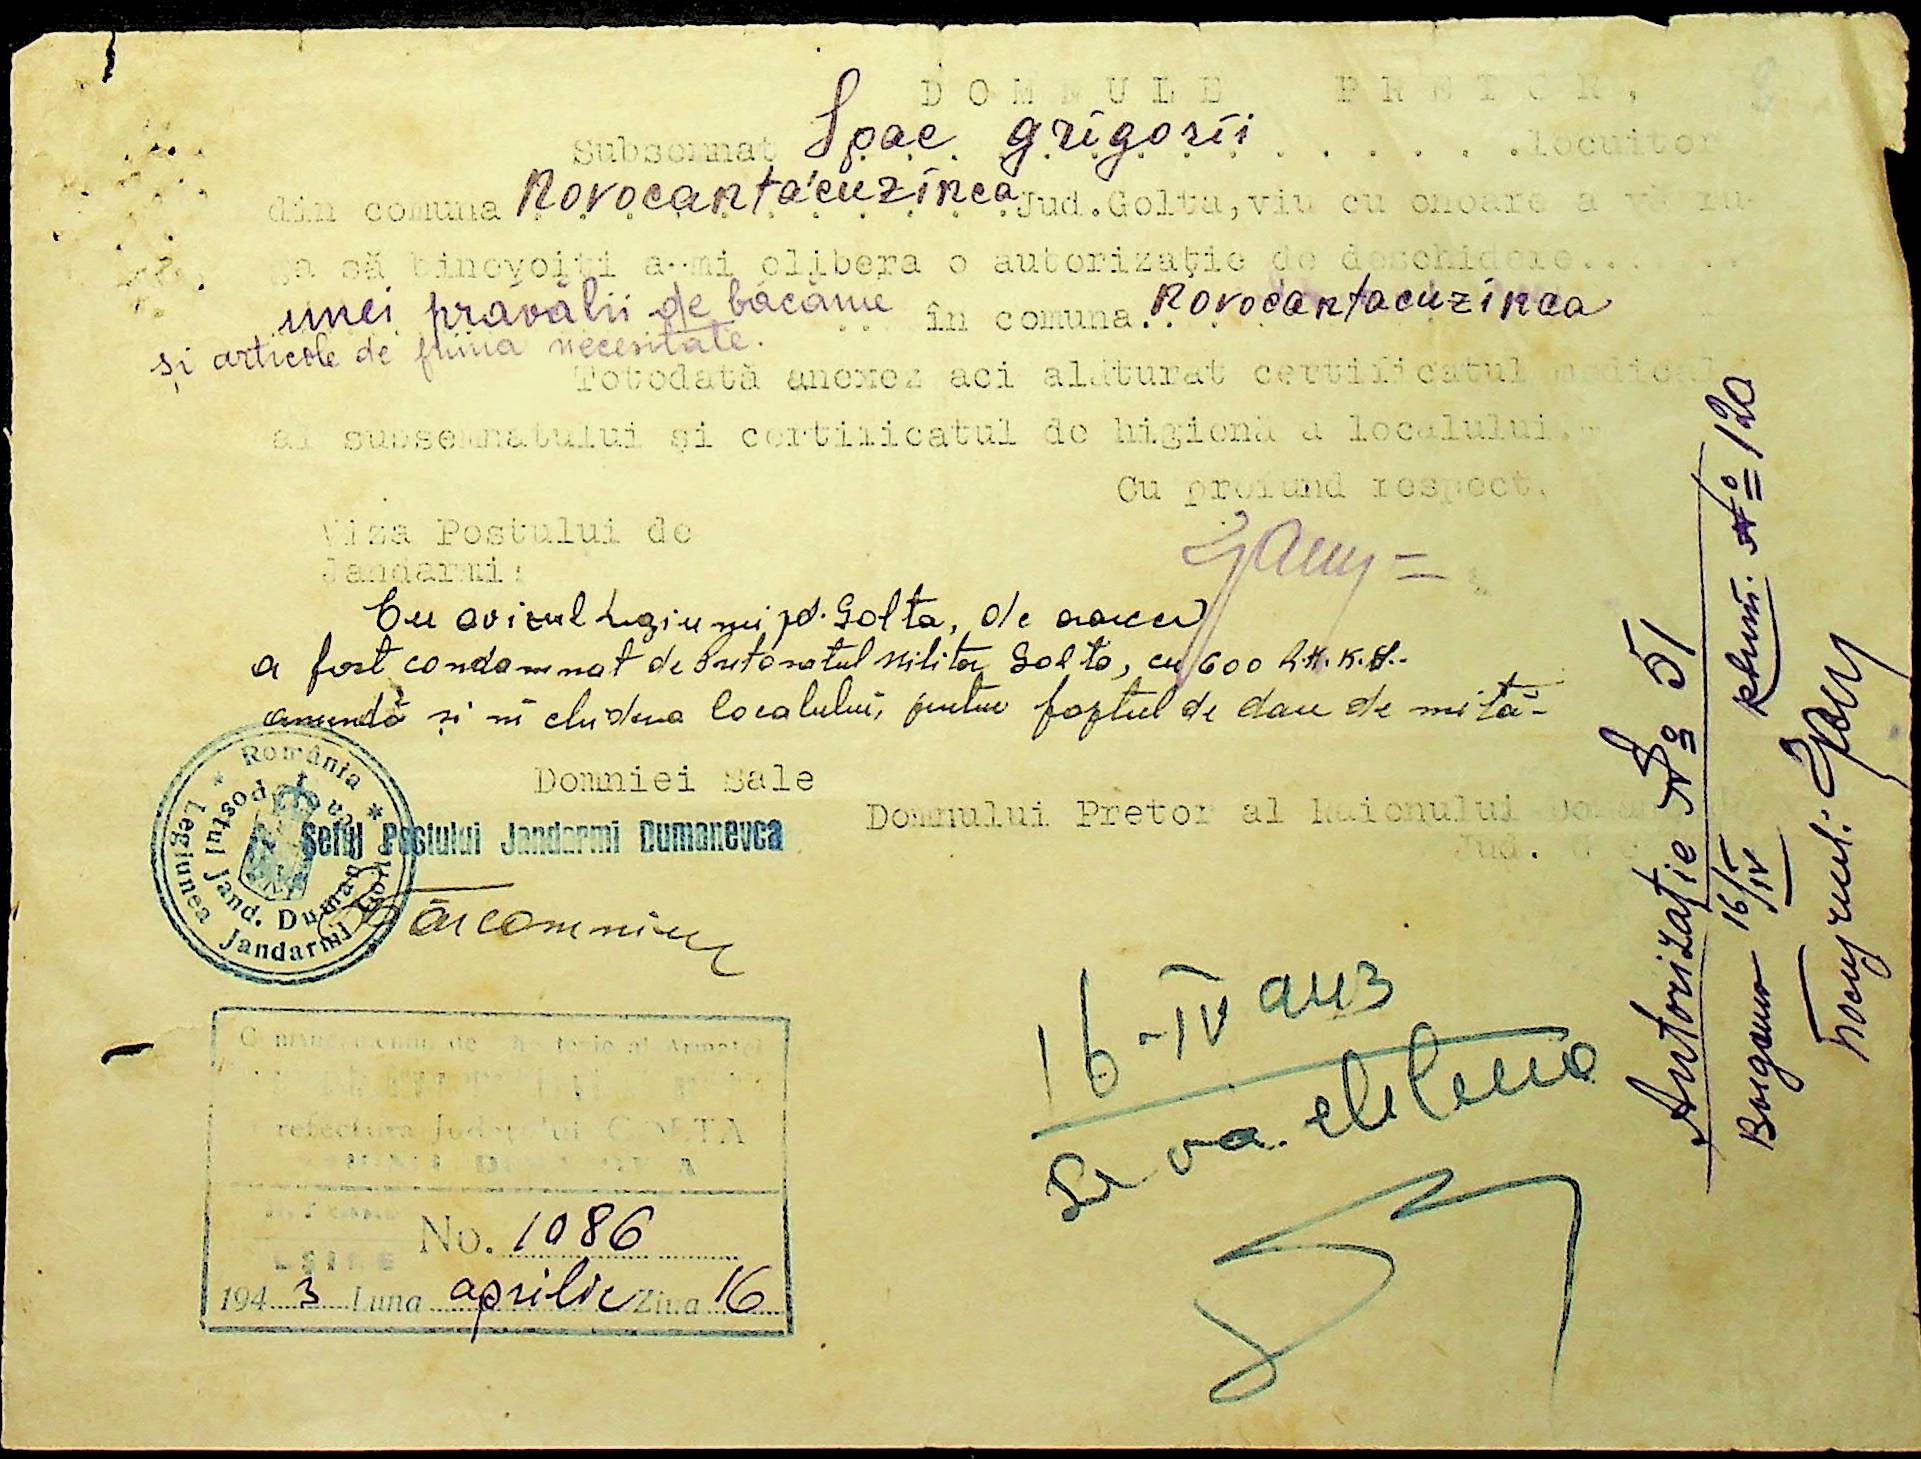 DOMNULE PRETOR,
Subsemnat Spac grigorii locuitor
din comuna Novocantacuzinca Jud. Golta, viu cu onoare a vă ru-
ga să binevoiţi a-mi elibera o autorizaţie de deschidere...
unei pravălii de băcănie în comuna Novocantacuzinca
şi articole de prima necesitate.
Totodată anexez aci alăturat certificatul medical
al subsemnatului şi certificatul de higienă a localului.-
Cu profund respect.
Viza Postului de
Jandarmi:
Cu avizul Legiunei jd. Golta, de oarece
a fost condamnat de Pretoratul Militar Golta, cu 600 R.K.K.S.
amendă şi închiderea localului, pentru faptul de dare de mită-
Domniei Sale
Domnului Pretor al Raionului
Jud.
România
Legiunea Jandarmi Golta
Postul Jand. Dumanevca
Şeful Postului Jandarmi Dumanevca
Prefectura Judeţului GOLTA
No. 1086
1943 Luna aprilie Ziua 16
16-IV 943
Se va elibera
Autorizaţie No 51
16/IV
No 120